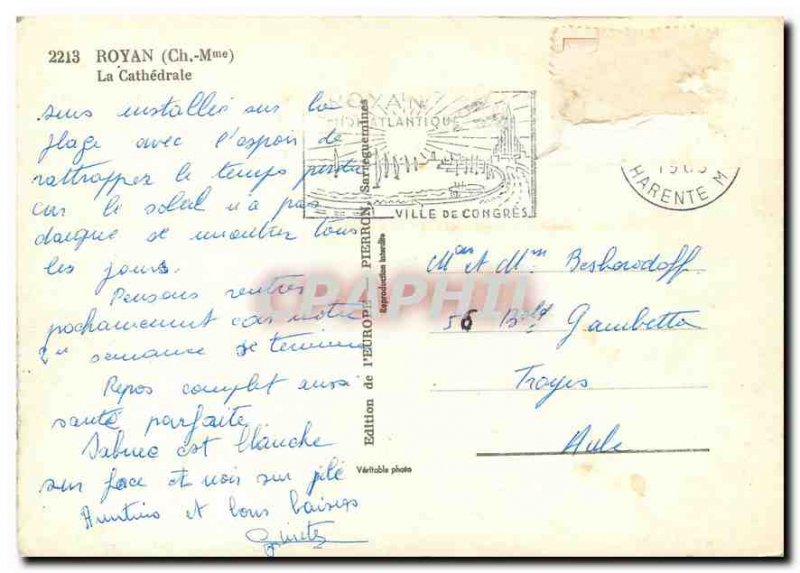 2213 ROYAN (Ch.-Mme)
La Cathédrale
sur la
plage avec l'espoir de
rattrapper le temps perdu
car le soleil n'a pas
daigné se montrer tous
les jours.
Pensons rentrer
prochainement car notre
2e semaine se termine
Repos complet aussi
santé parfaite
est blanche
sur face et noir sur pile
et bons baisers
Edition de l'EUROPE PIERRON, Sarreguemines
Reproduction interdite
Véritable photo
ROYAN
ATLANTIQUE
VILLE DE CONGRÈS
HARENTE M
CPAPHIL
Mr et Mme
56 Bd Gambetta
Troyes
Aube